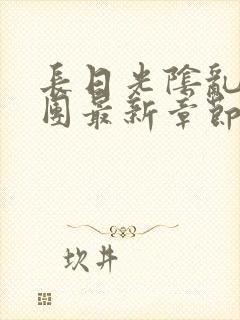 長日光陰亂
團最新章節
坎井